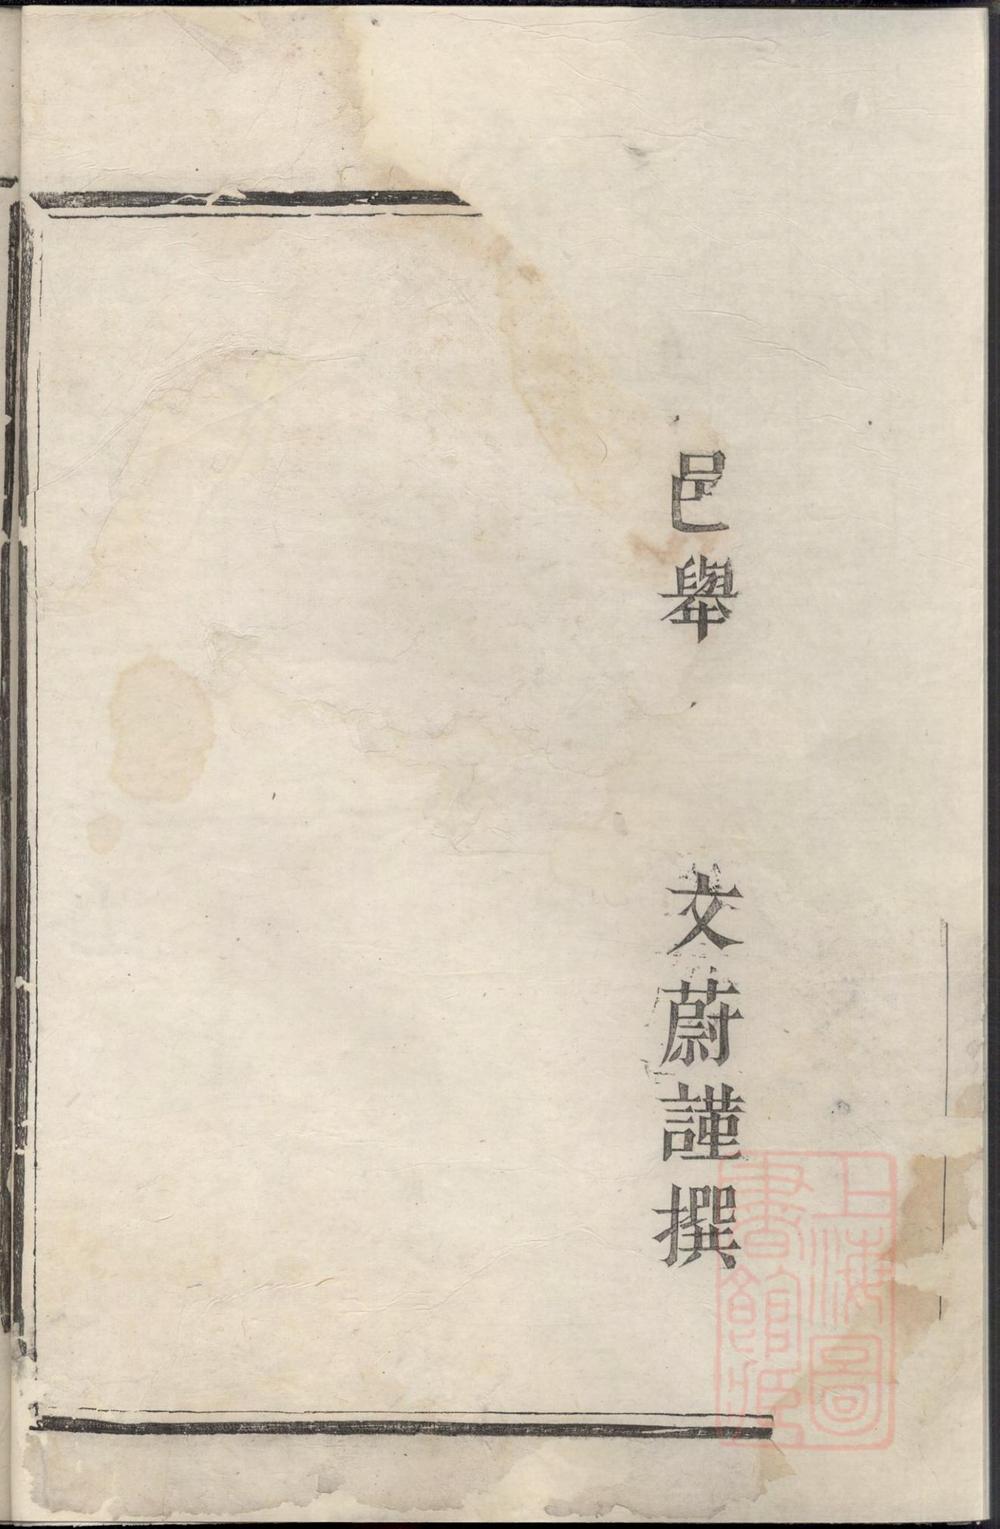 邑舉 文蔚謹撰
上海圖
書館藏